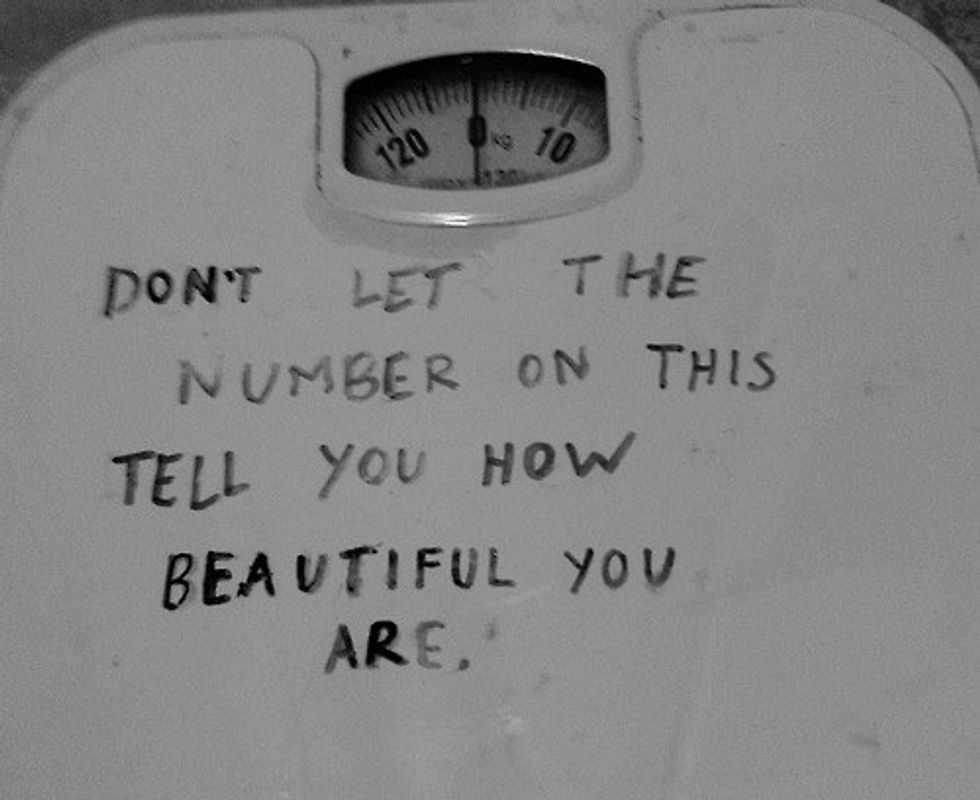 120 0 kg 10
130
DON'T LET THE
NUMBER ON THIS
TELL YOU HOW
BEAUTIFUL YOU
ARE.